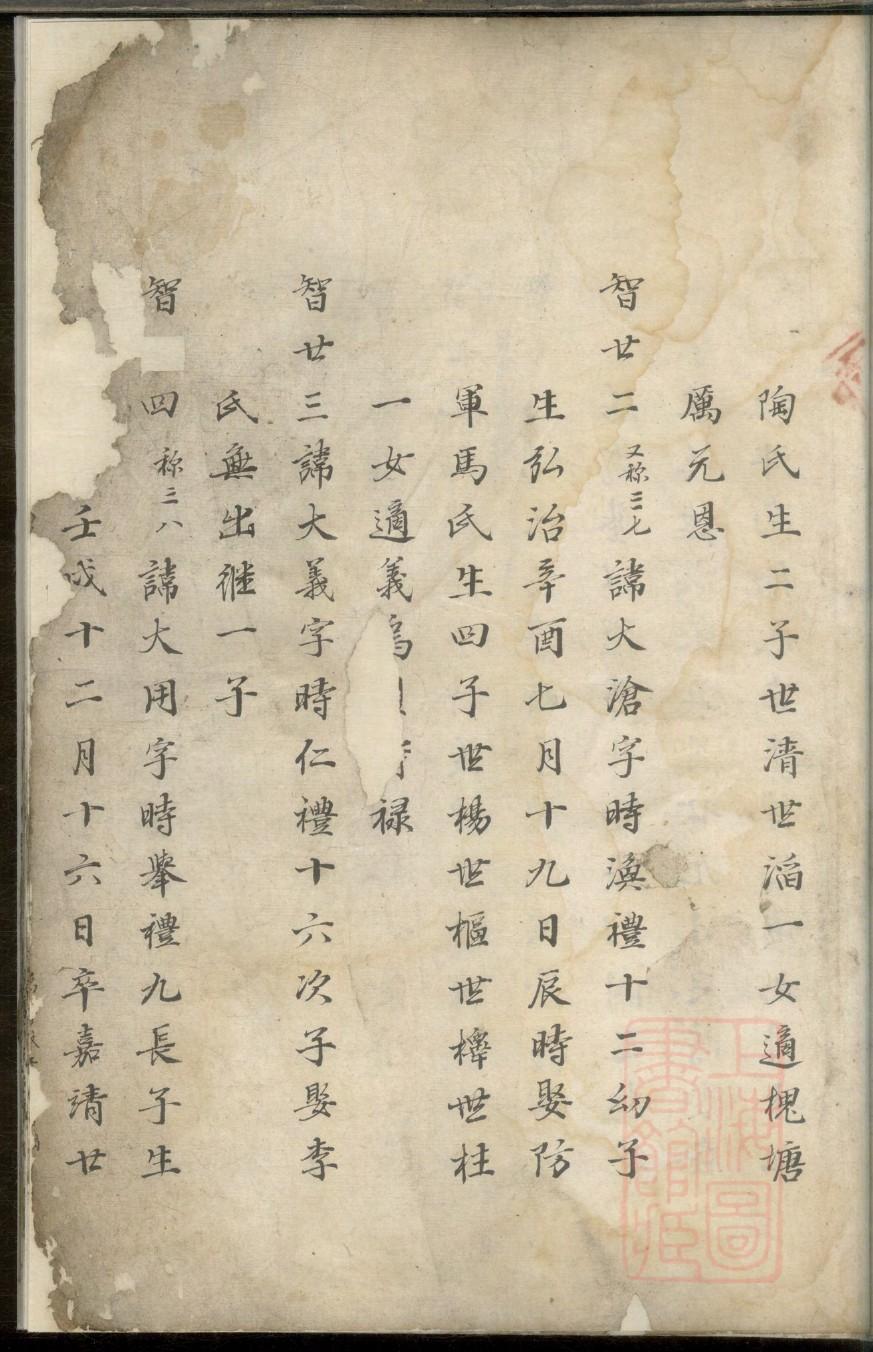 陶氏生二子世清世滔一女適槐塘
厲元恩
智廿二又称三七諱大滄字時渙禮十二幼子
生弘治辛酉七月十九日辰時娶防
軍馬氏生四子世楊世樞世檡世柱
一女適義禄
智廿三諱大義字時仁禮十六次子娶李
氏無出継一子
智四称三八諱大用字時舉禮九長子生
壬戌十二月十六日卒嘉靖廿
上海圖書館藏